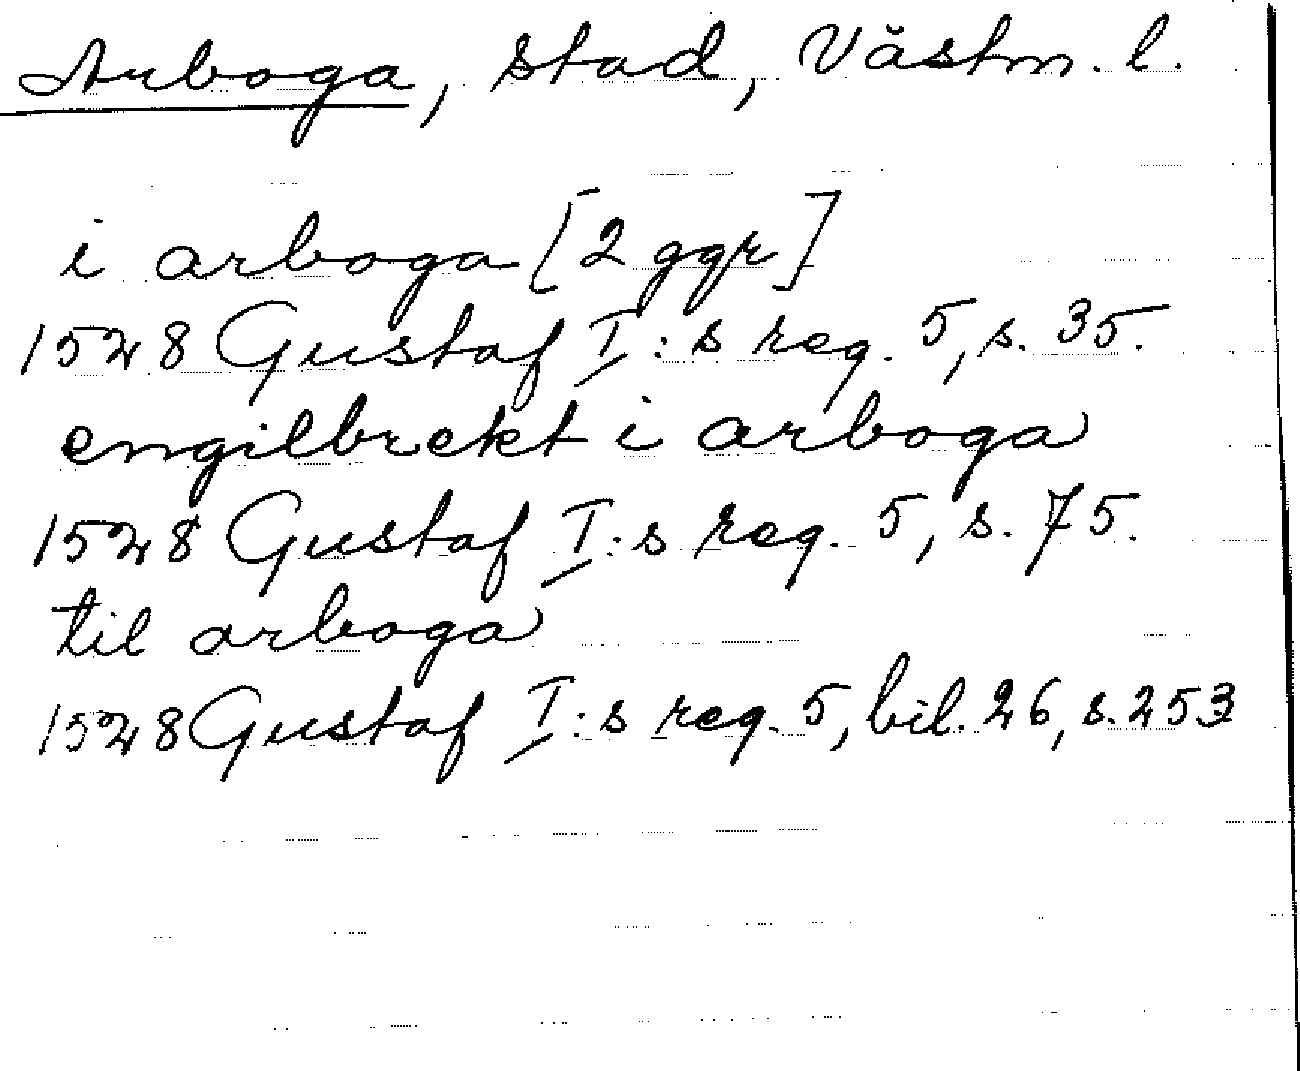 Arboga, stad, Västm. l.
i arboga [2 ggr]
1528 Gustaf I:s reg. 5, s. 35.
engilbrekt i arboga
1528 Gustaf I:s reg. 5, s. 75.
til arboga
1528 Gustaf I:s reg. 5, bil. 26, s. 253